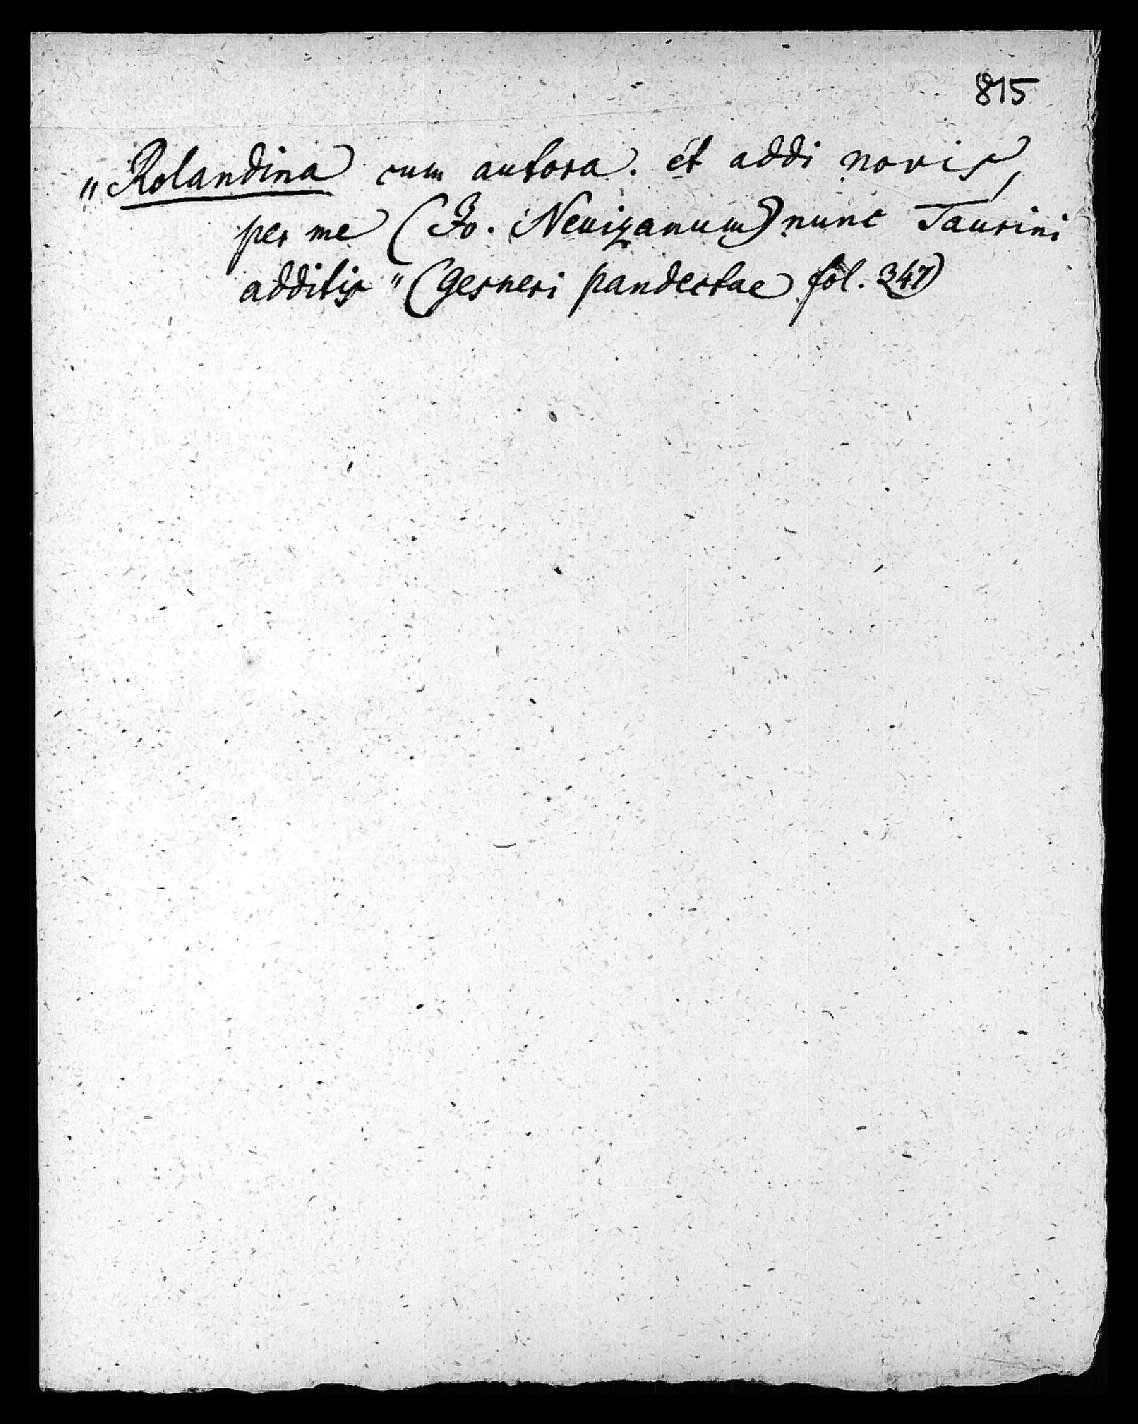 815
„Rolandina cum autora. et addi novis,
per me (Jo. Neuizanum) nunc Taurini
additis" (Gesneri pandectae fol. 347)